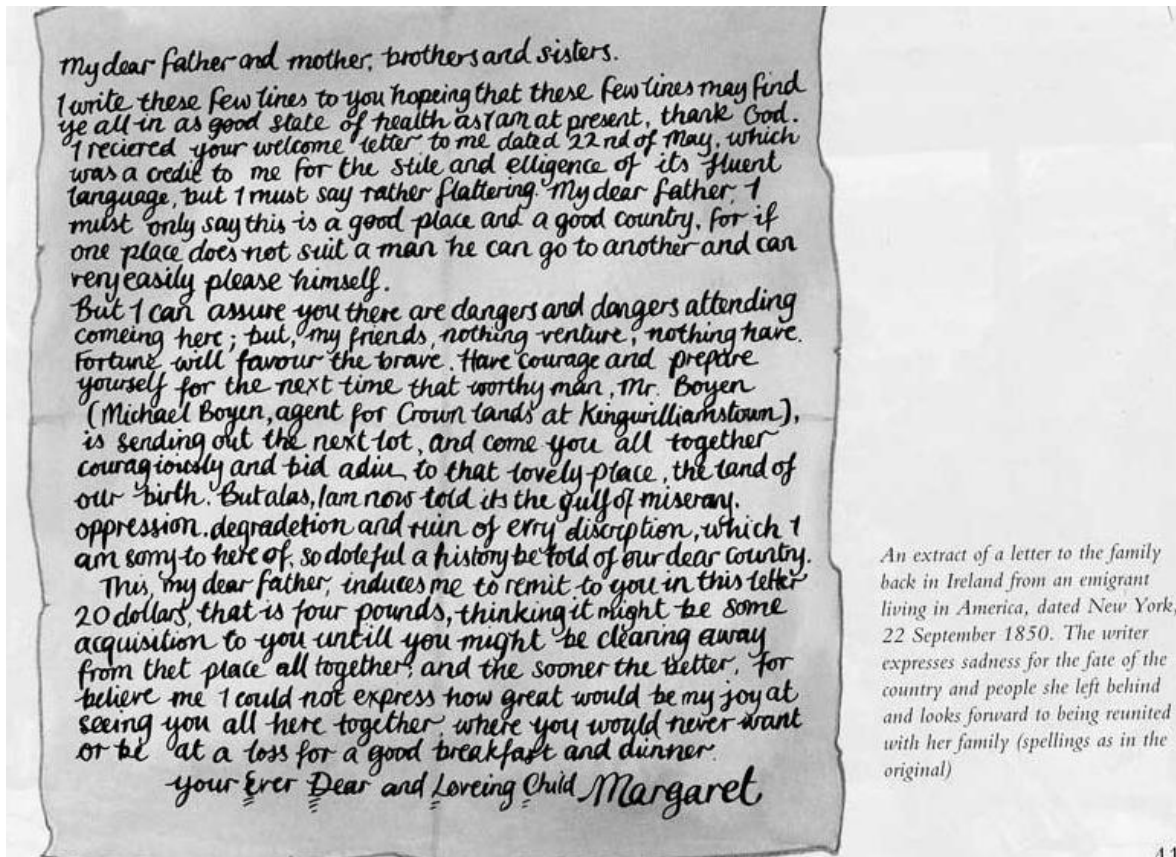 My dear father and mother, brothers and sisters.
I write these few lines to you hopeing that these few lines may find
ye all in as good state of health as I am at present, thank God.
I reciered your welcome letter to me dated 22nd of May, which
was a credit to me for the stile and elligence of its fluent
language, but I must say rather flattering. My dear father, I
must only say this is a good place and a good country, for if
one place does not suit a man he can go to another and can
very easily please himself.
But I can assure you there are dangers and dangers attending
comeing here; but, my friends, nothing venture, nothing have.
Fortune will favour the brave. Have courage and prepare
yourself for the next time that worthy man, Mr. Boyen
(Michael Boyen, agent for Crown lands at Kingwilliamstown),
is sending out the next lot, and come you all together
couragiously and bid adiu to that lovely place, the land of
our birth. But alas, I am now told its the gulf of miserary.
oppression. degradetion and ruin of erry discription, which I
am sorry to here of, so doleful a history be told of our dear country.
This, my dear father, induces me to remit to you in this letter
20 dollars, that is four pounds, thinking it might be some
acquisition to you untill you might be clearing away
from thet place all together, and the sooner the better, for
believe me I could not express how great would be my joy at
seeing you all here together, where you would never want
or be at a loss for a good breakfast and dinner.
your Ever Dear and Loveing Child Margaret
An extract of a letter to the family
back in Ireland from an emigrant
living in America, dated New York,
22 September 1850. The writer
expresses sadness for the fate of the
country and people she left behind
and looks forward to being reunited
with her family (spellings as in the
original)